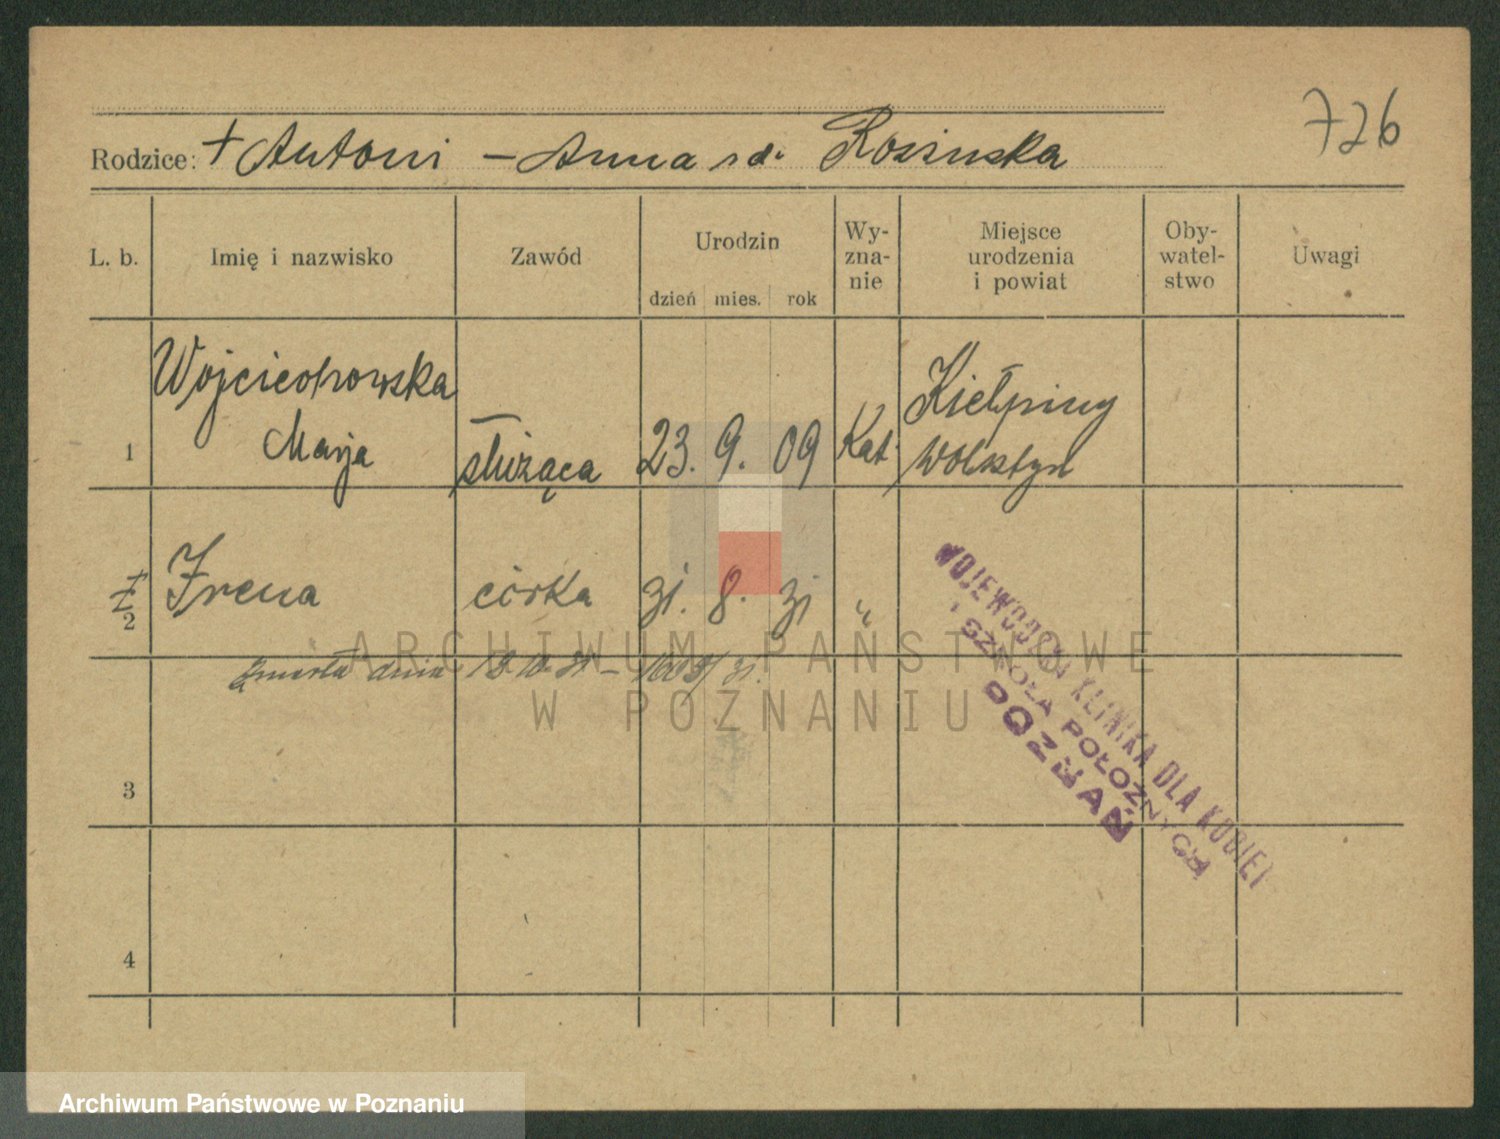 726
Rodzice: + Antoni – Anna rd. Rosinska
L. b. Imię i nazwisko Zawód Urodzin dzień mies. rok Wy-zna-nie Miejsce urodzenia i powiat Oby-watel-stwo Uwagi
1 Wojciechowska Marja służąca 23. 9. 09 Kat. Kiełpiny Wolsztyn
2 Irena córka 31. 8. 31 „
zmarła dnia 12.10.31 –
3
4
WOJEWÓDZKA KLINIKA DLA KOBIET
i SZKOŁA POŁOŻNYCH
POZNAŃ
ARCHIWUM PAŃSTWOWE
W POZNANIU
Archiwum Państwowe w Poznaniu